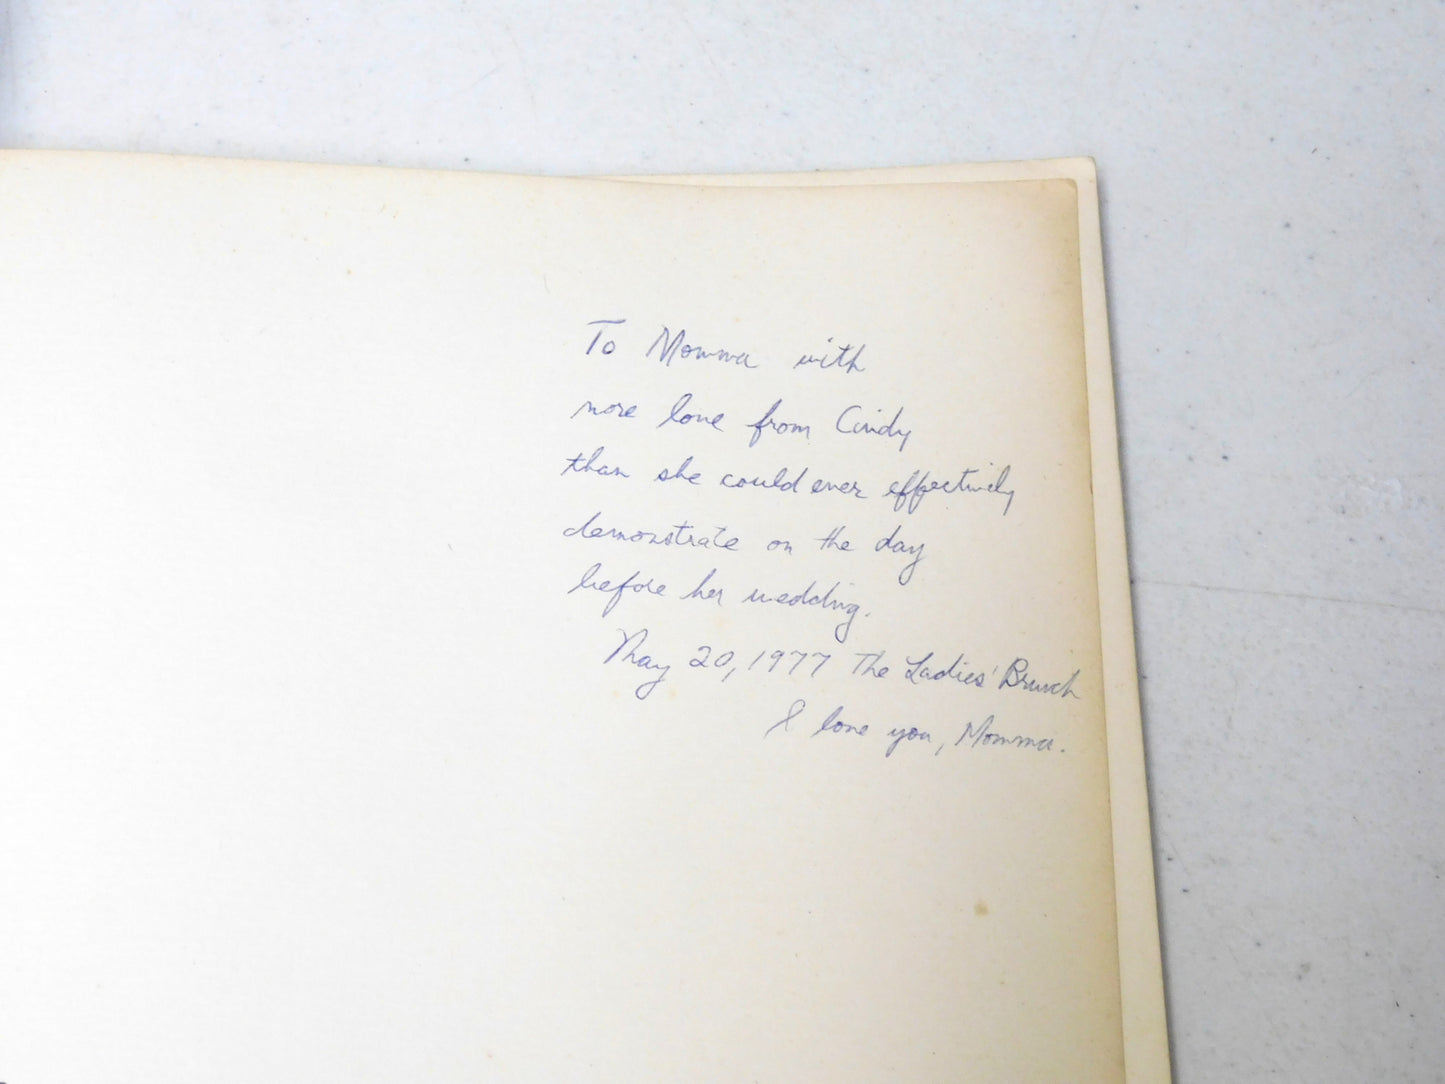 To Momma with
more love from Cindy
than she could ever effectively
demonstrate on the day
before her wedding.
May 20, 1977 The Ladies' Brunch
I love you, Momma.